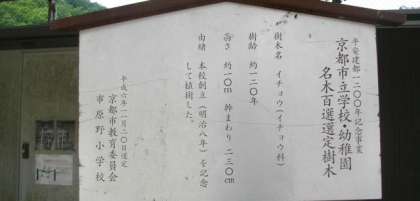 平安建都一二〇〇年記念事業
京都市立学校・幼稚園
名木百選選定樹木
樹木名 イチョウ(イチョウ科)
樹齢 約一二〇年
高さ 約一〇m 幹まわり 二三〇cm
由緒 本校創立(明治八年)を記念
して植樹した。
平成六年一一月二〇日選定
京都市教育委員会
市原野小学校